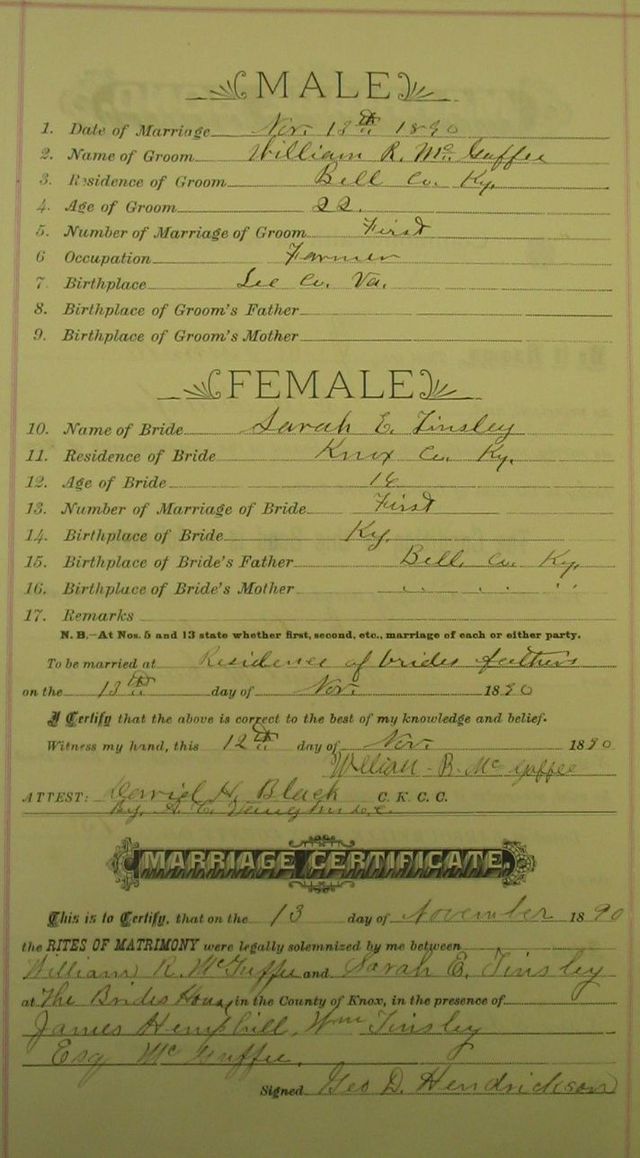 MALE
1. Date of Marriage Nov. 13th 1890
2. Name of Groom William R. Mc Guffee
3. Residence of Groom Bell Co. Ky.
4. Age of Groom 22.
5. Number of Marriage of Groom First
6 Occupation Farmer
7. Birthplace Lee Co. Va.
8. Birthplace of Groom's Father
9. Birthplace of Groom's Mother
FEMALE
10. Name of Bride Sarah E. Tinsley
11. Residence of Bride Knox Co. Ky.
12. Age of Bride 16
13. Number of Marriage of Bride First
14. Birthplace of Bride Ky.
15. Birthplace of Bride's Father Bell Co. Ky.
16. Birthplace of Bride's Mother " " "
17. Remarks
N. B.—At Nos. 5 and 13 state whether first, second, etc., marriage of each or either party.
To be married at Residence of brides fathers
on the 13th day of Nov. 1890
I Certify that the above is correct to the best of my knowledge and belief.
Witness my hand, this 12th day of Nov. 1890
William B. Mc Guffee
ATTEST: David H. Black C. K. C. C.
By A. C. Vaughn D.C.
MARRIAGE CERTIFICATE.
This is to Certify, that on the 13 day of November 1890
the RITES OF MATRIMONY were legally solemnized by me between
William R. McGuffee and Sarah E. Tinsley
at The Brides House, in the County of Knox, in the presence of
James Hemphill, Wm Tinsley
Esq McGuffee.
Signed Geo D. Hendrickson